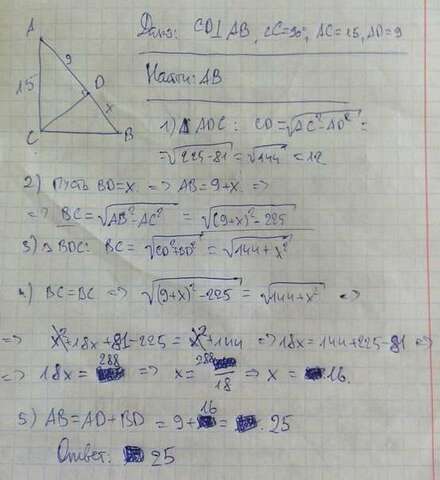 Дано: CD⊥AB, ∠C=90°, AC=15, AD=9
Найти: AB
A
9
15
D
x
C
B
1) ΔADC: CD=√(AC²-AD²)=
=√(225-81)=√144=12
2) Пусть BD=x. => AB=9+x. =>
=> BC=√(AB²-AC²) = √((9+x)²-225)
3) ΔBDC: BC=√(CD²+BD²)=√(144+x²)
4) BC=BC => √((9+x)²-225)=√(144+x²) =>
=> x²+18x+81-225=x²+144 =>18x=144+225-81 =>
=> 18x=288 => x=288/18 => x=16.
5) AB=AD+BD=9+16=25
Ответ: 25